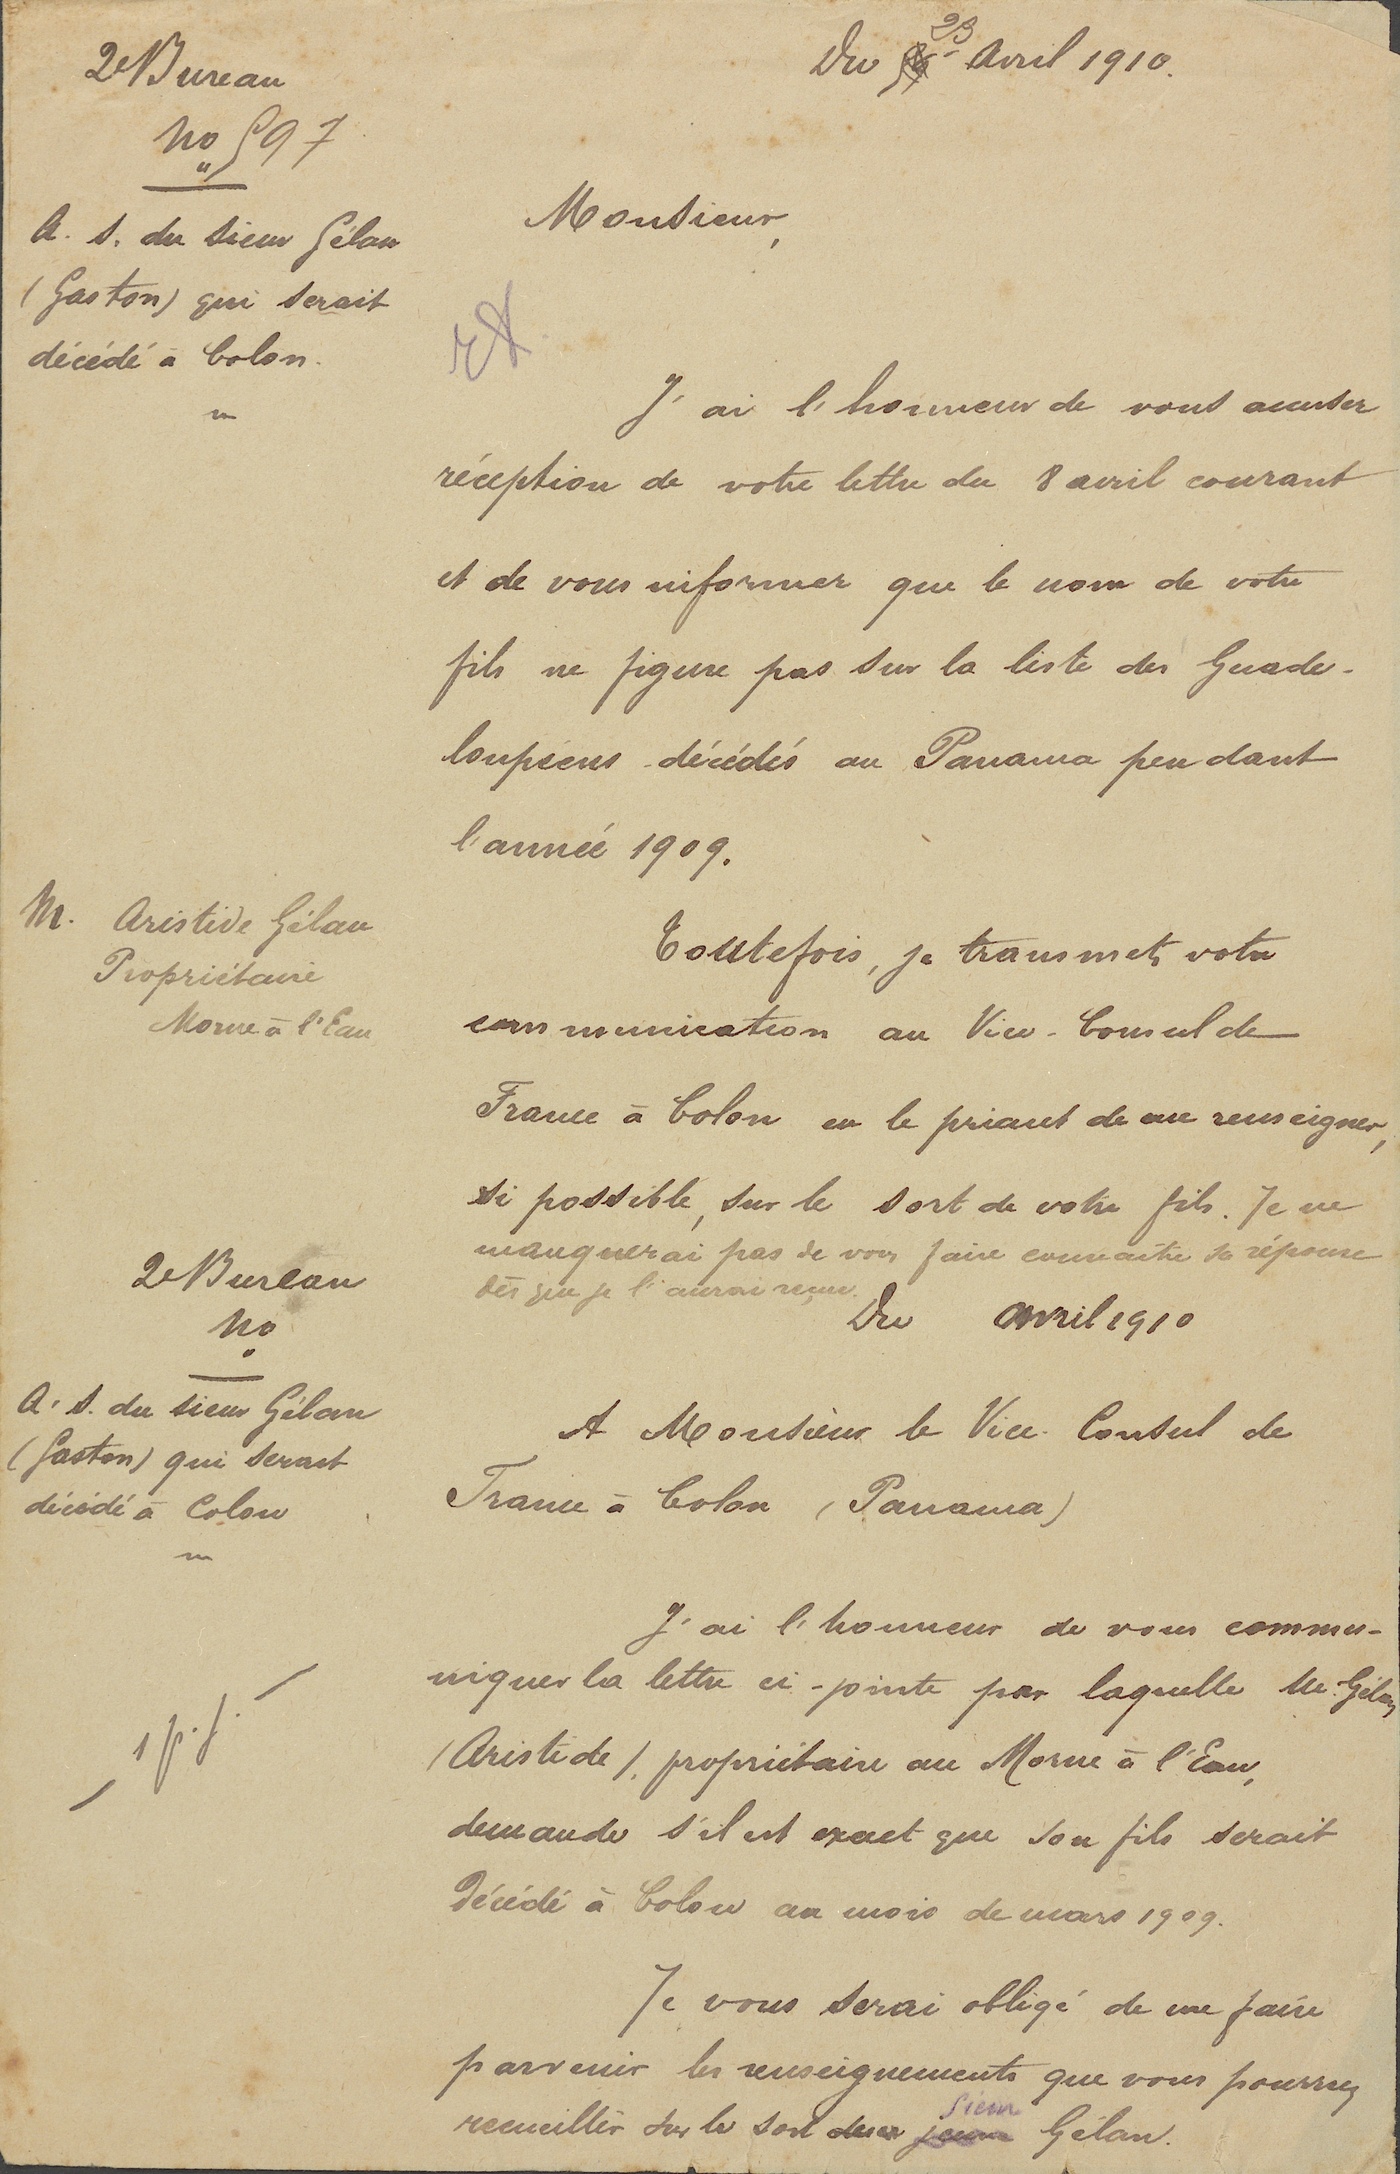 2e Bureau
No 597
Du 23 Avril 1910.
A. s. du sieur Gélan
(Gaston) qui serait
décédé à Colon.
Monsieur,
J'ai l'honneur de vous accuser
réception de votre lettre du 8 avril courant
et de vous informer que le nom de votre
fils ne figure pas sur la liste des Guade-
loupéens décédés au Panama pendant
l'année 1909.
M. Aristide Gélan
Propriétaire
Morne à l'Eau
Toutefois, je transmets votre
communication au Vice-Consul de
France à Colon en le priant de me renseigner,
si possible, sur le sort de votre fils. Je ne
manquerai pas de vous faire connaître sa réponse
dès que je l'aurai reçue.
2e Bureau
No
Du avril 1910
A. s. du sieur Gélan
(Gaston) qui serait
décédé à Colon
A Monsieur le Vice-Consul de
France à Colon (Panama)
J'ai l'honneur de vous commu-
niquer la lettre ci-jointe par laquelle M. Gélan
(Aristide), propriétaire au Morne à l'Eau,
demande s'il est exact que son fils serait
décédé à Colon au mois de mars 1909.
1 p. j.
Je vous serai obligé de me faire
parvenir les renseignements que vous pourrez
recueillir sur le sort du sieur Gélan.